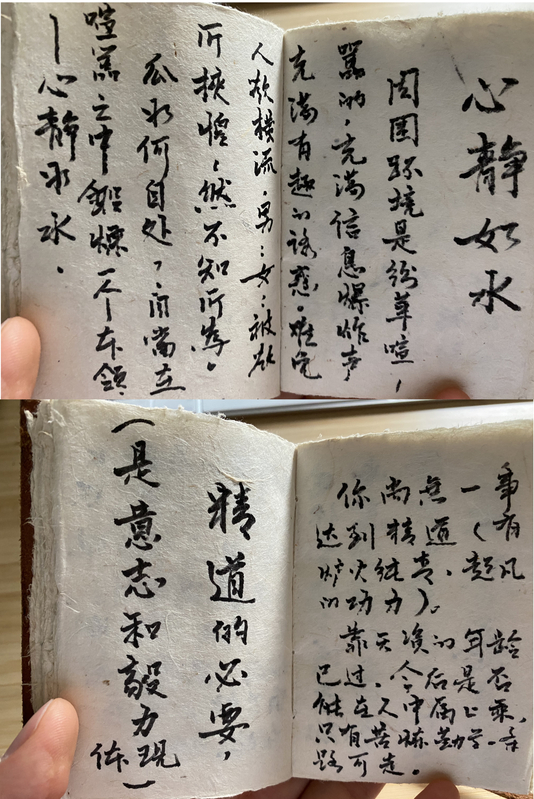 心静如水
周围环境是纷革喧、
嚣的，充满信息爆炸声，
充满有趣的诱惑。难免
人欲横流，男：女：被欲
所挟惶，然不知所为。
如何自处，自当在
喧嚣之中锻炼一个本领
—心静如水。
你尚无一事
达到精道（有
炉火纯青、超凡
的功力）。
靠天资的年龄
已过，今后是否
能在人中属上乘，
只有苦炼勤学一条
路可走。
精道的必要，
（是意志和毅力体现）